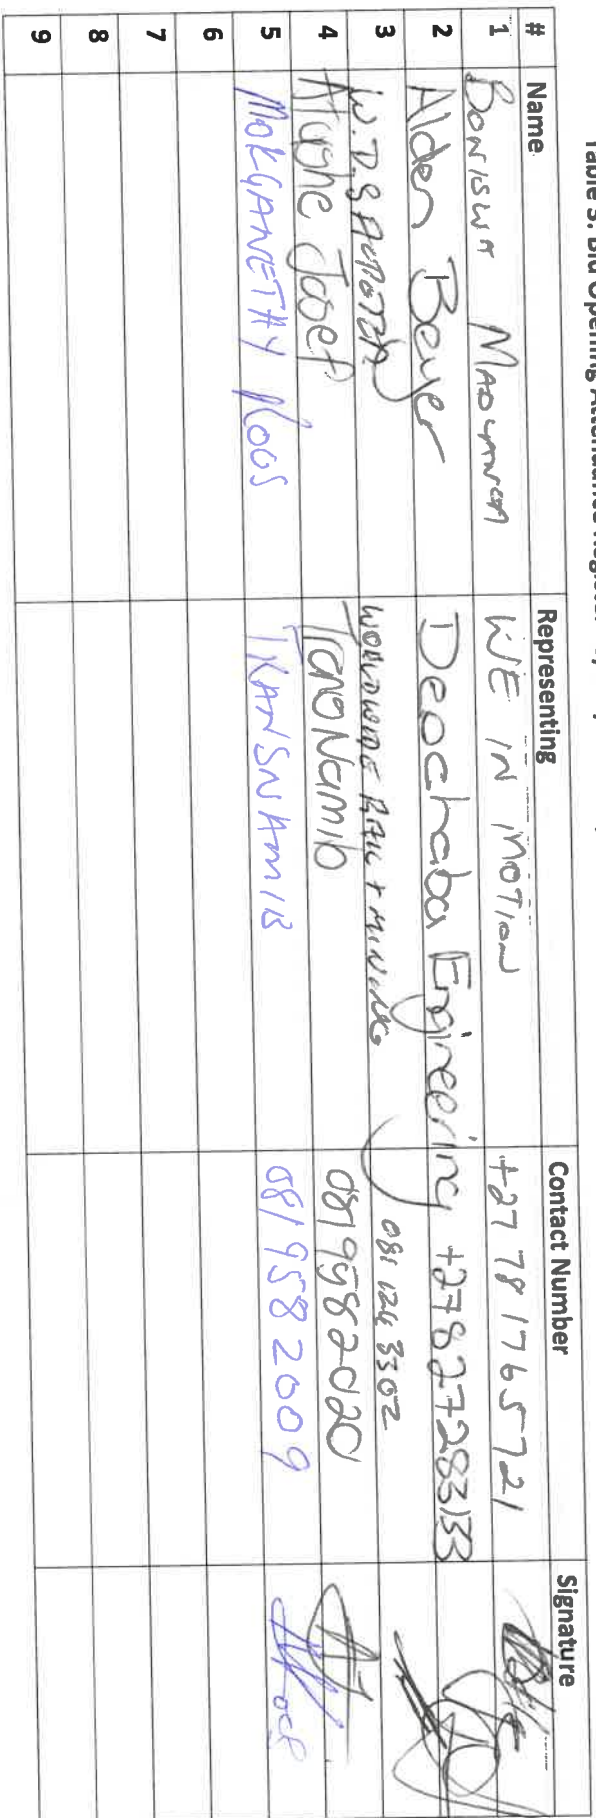 Table 3: Bid Opening Attendance Register
# Name Representing Contact Number Signature
1 BONISWA WE IN MOTION +27 78 176 5721
2 Alden Beyer Deochaba Engineering +27827283133
3 W.D. WORLDWIDE RAIL + MINING 081 124 3302
4 Josef TransNamib 0819582020
5 MOKGANETHY KOOS TRANSNAMIB 0819582009
6
7
8
9